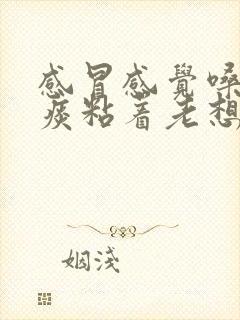 感冒感覺嗓
痰粘着老想
姻淺